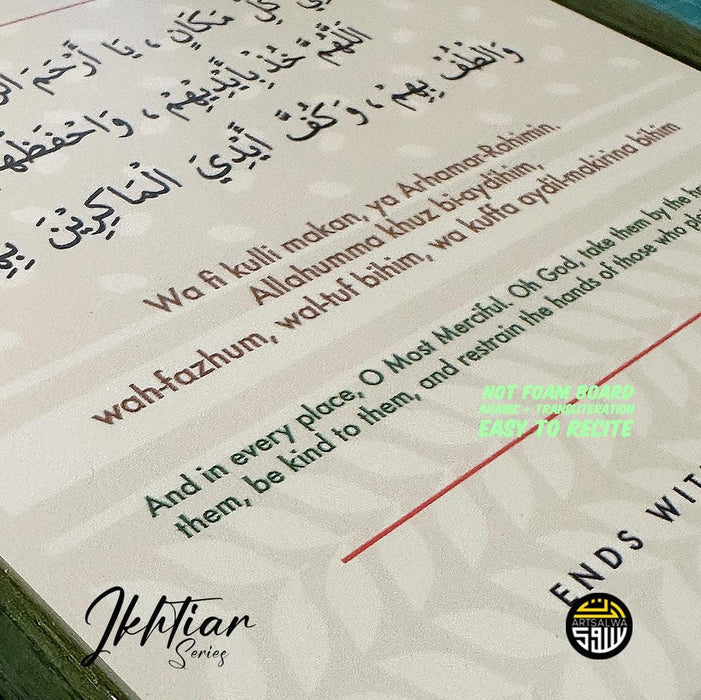 كُلِّ مَكَانٍ ، يَا أَرْحَمَ
اللَّهُمَّ خُذْ بِأَيْدِيهِمْ ، وَاحْفَظْهُ
وَالْطُفْ بِهِمْ ، وَكُفَّ أَيْدِيَ الْمَاكِرِيْنَ
Wa fi kulli makan, ya Arhamar-Rahimin.
Allahumma khuz bi-aydihim,
wah-fazhum, wal-tuf bihim, wa kuffa aydil-makirina bihim
And in every place, O Most Merciful. Oh God, take them by the
them, be kind to them, and restrain the hands of those who
NOT FOAM BOARD
ARABIC + TRANSLITERATION
EASY TO RECITE
ENDS
Ikhtiar
Series
ARTSALWA